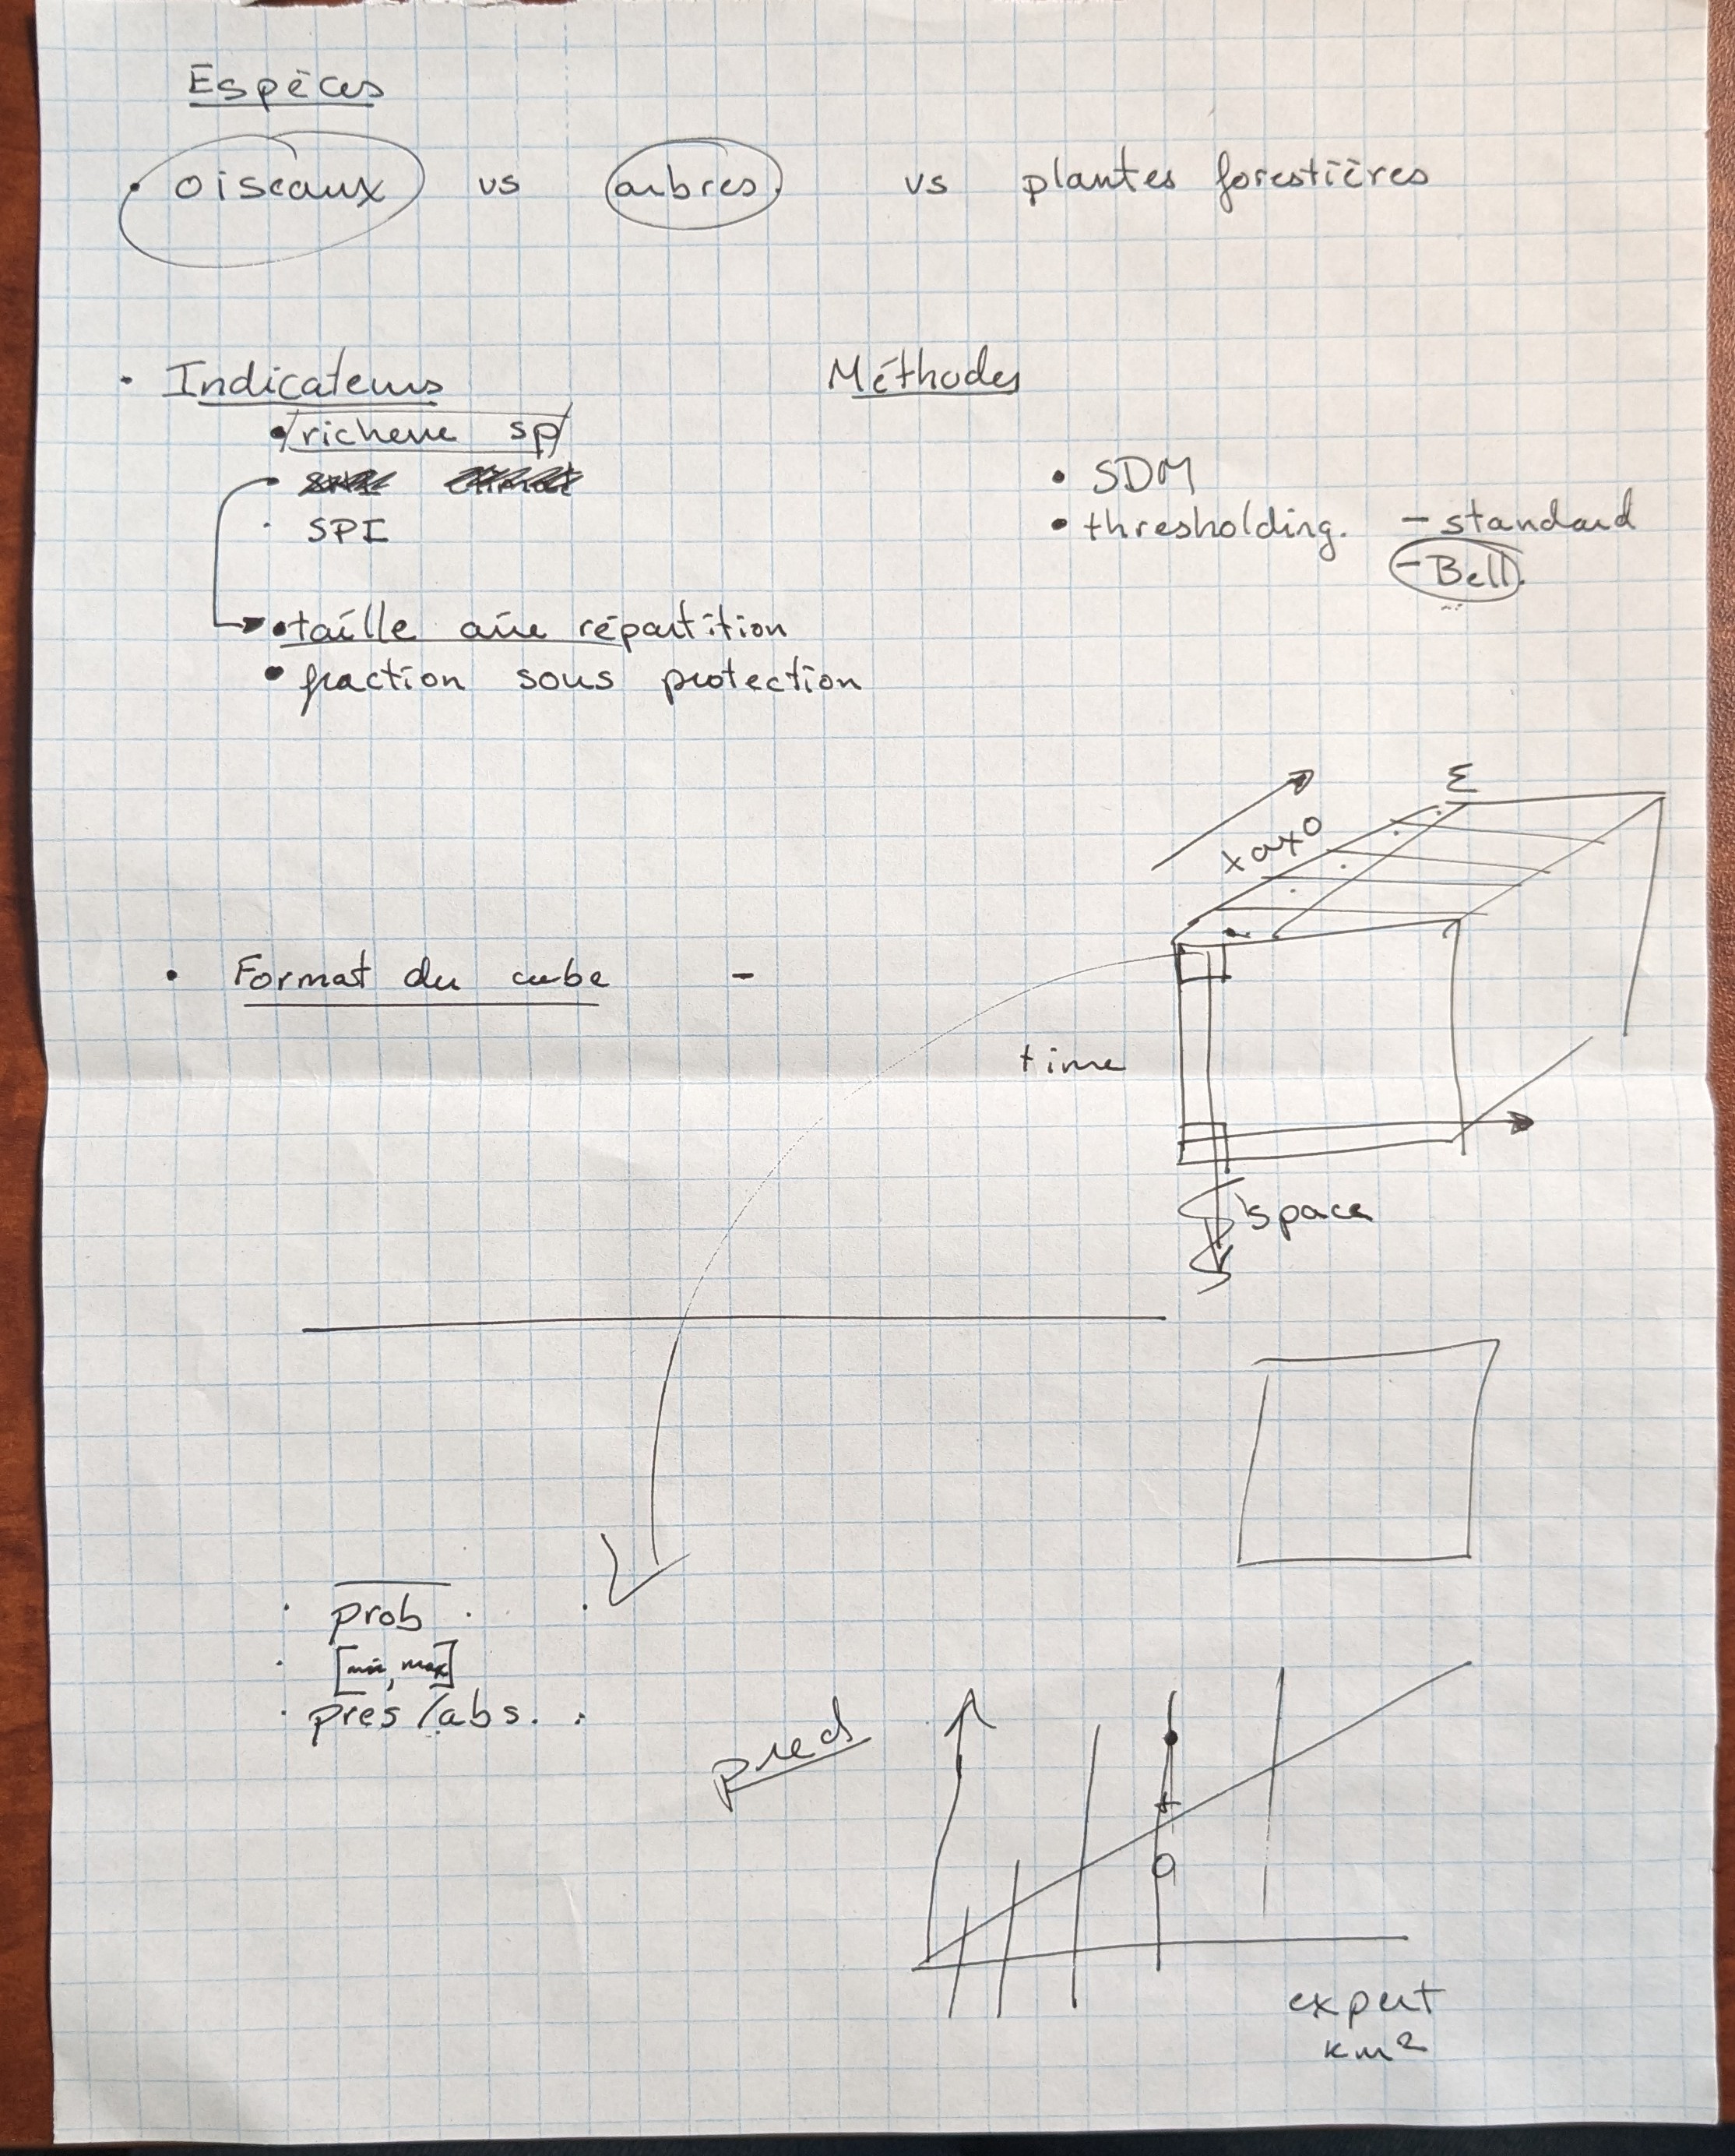 Espèces
• oiseaux vs arbres. vs plantes forestières
• Indicateurs
• richesse sp
• SPI
• taille aire répartition
• fraction sous protection
Méthodes
• SDM
• thresholding. - standard
- Bell.
Σ
taxo
• Format du cube -
time
space
• prob .
• [min, max]
• pres/abs. :
pred
expert
km²